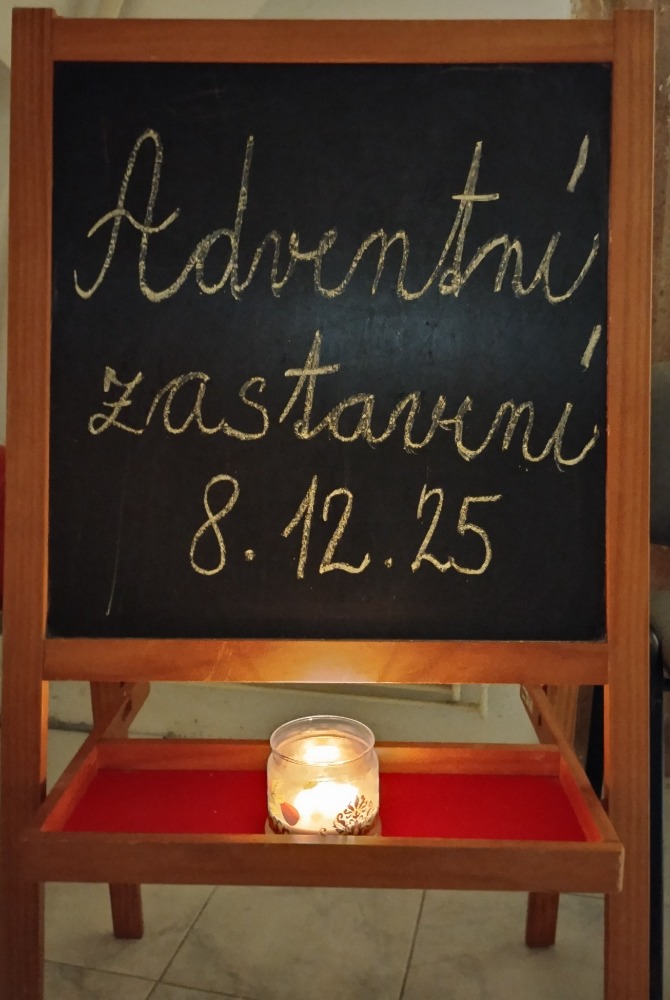 Adventní
zastavení
8.12.25